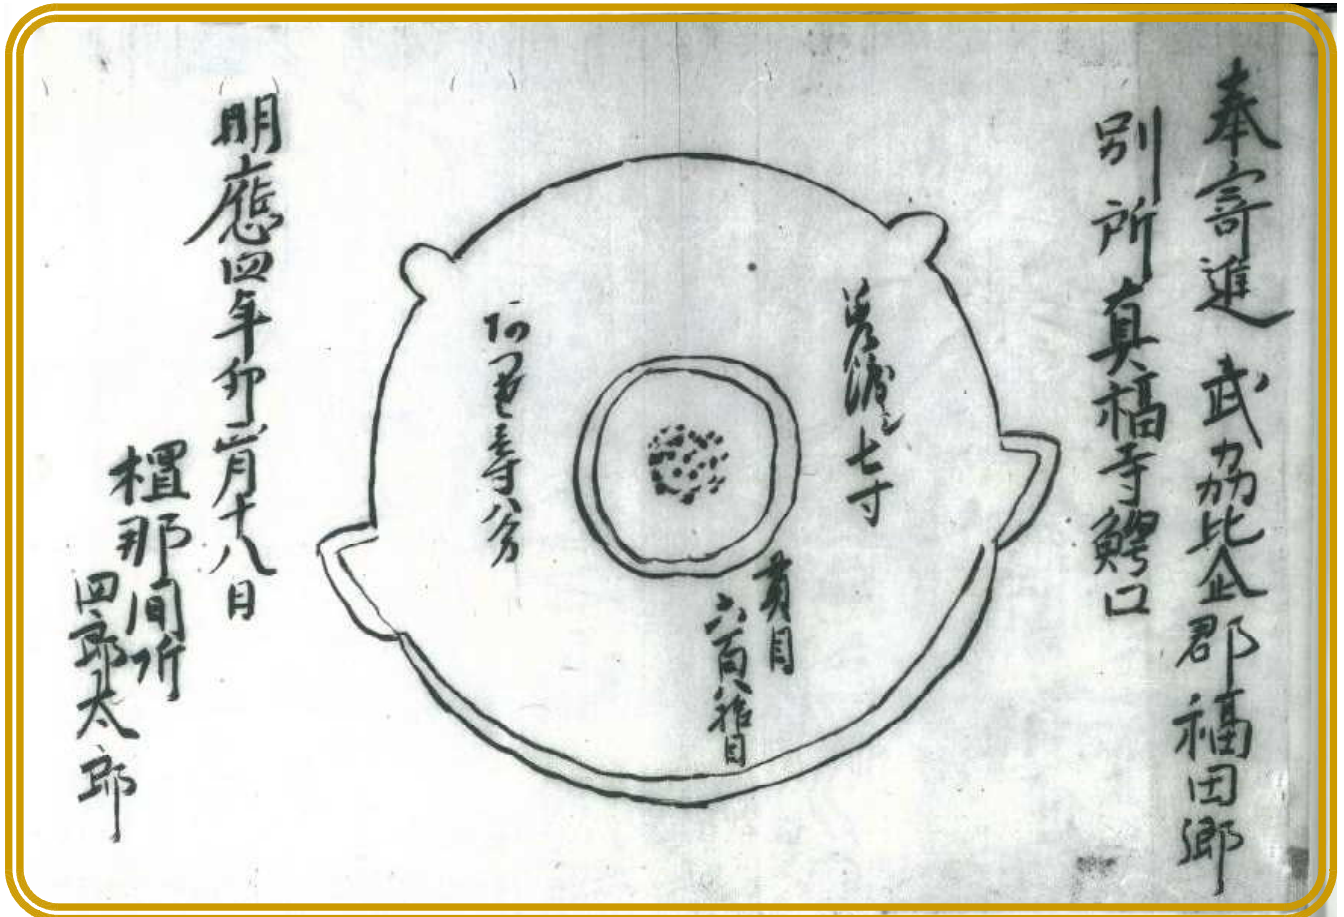 奉寄進 武劦比企郡福田郷
別所真福寺鰐口
差渡シ七寸
貫目
六百八拾目
寸八分
明應四年卯月十八日
檀那間所
四郎太郎